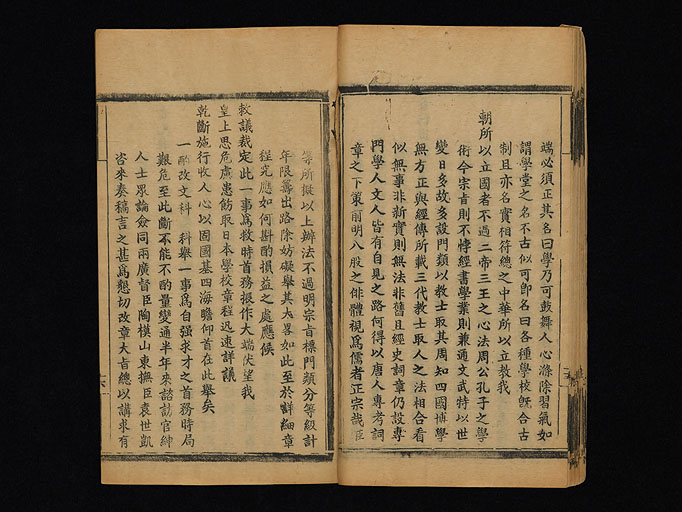 端必須正其名曰學乃可鼓舞人心滌除習氣如
謂學堂之名不古似可卽名曰各種學校旣合古
制且亦名實相符總之中華所以立教我
朝所以立國者不過二帝三王之心法周公孔子之學
術今宗旨則不悖經書學業則兼通文武特以世
變日多故多設門類以教士取其周知四國博學
無方正與經傳所載三代教士取人之法相合看
似無事非新實則無法非舊且經史詞章仍設專
門學人文人皆有自見之路何得以唐人專考詞
章之下策前明八股之俳體視爲儒者正宗哉臣
等所擬以上辦法不過明宗旨標門類分等級計
年限籌出路除妨礙舉其大畧如此至於詳細章
程究應如何斟酌損益之處應候
敕議裁定此一事爲救時首務振作大端伏望我
皇上思危慮患飭取日本學校章程迅速詳議
乾斷施行收人心以固國基四海瞻仰首在此舉矣
一酌改文科 科舉一事爲自强求才之首務時局
艱危至此斷不能不酌量變通半年來諮訪官紳
人士眾論僉同兩廣督臣陶模山東撫臣袁世凱
咨來奏稿言之甚爲懇切改章大旨總以講求有